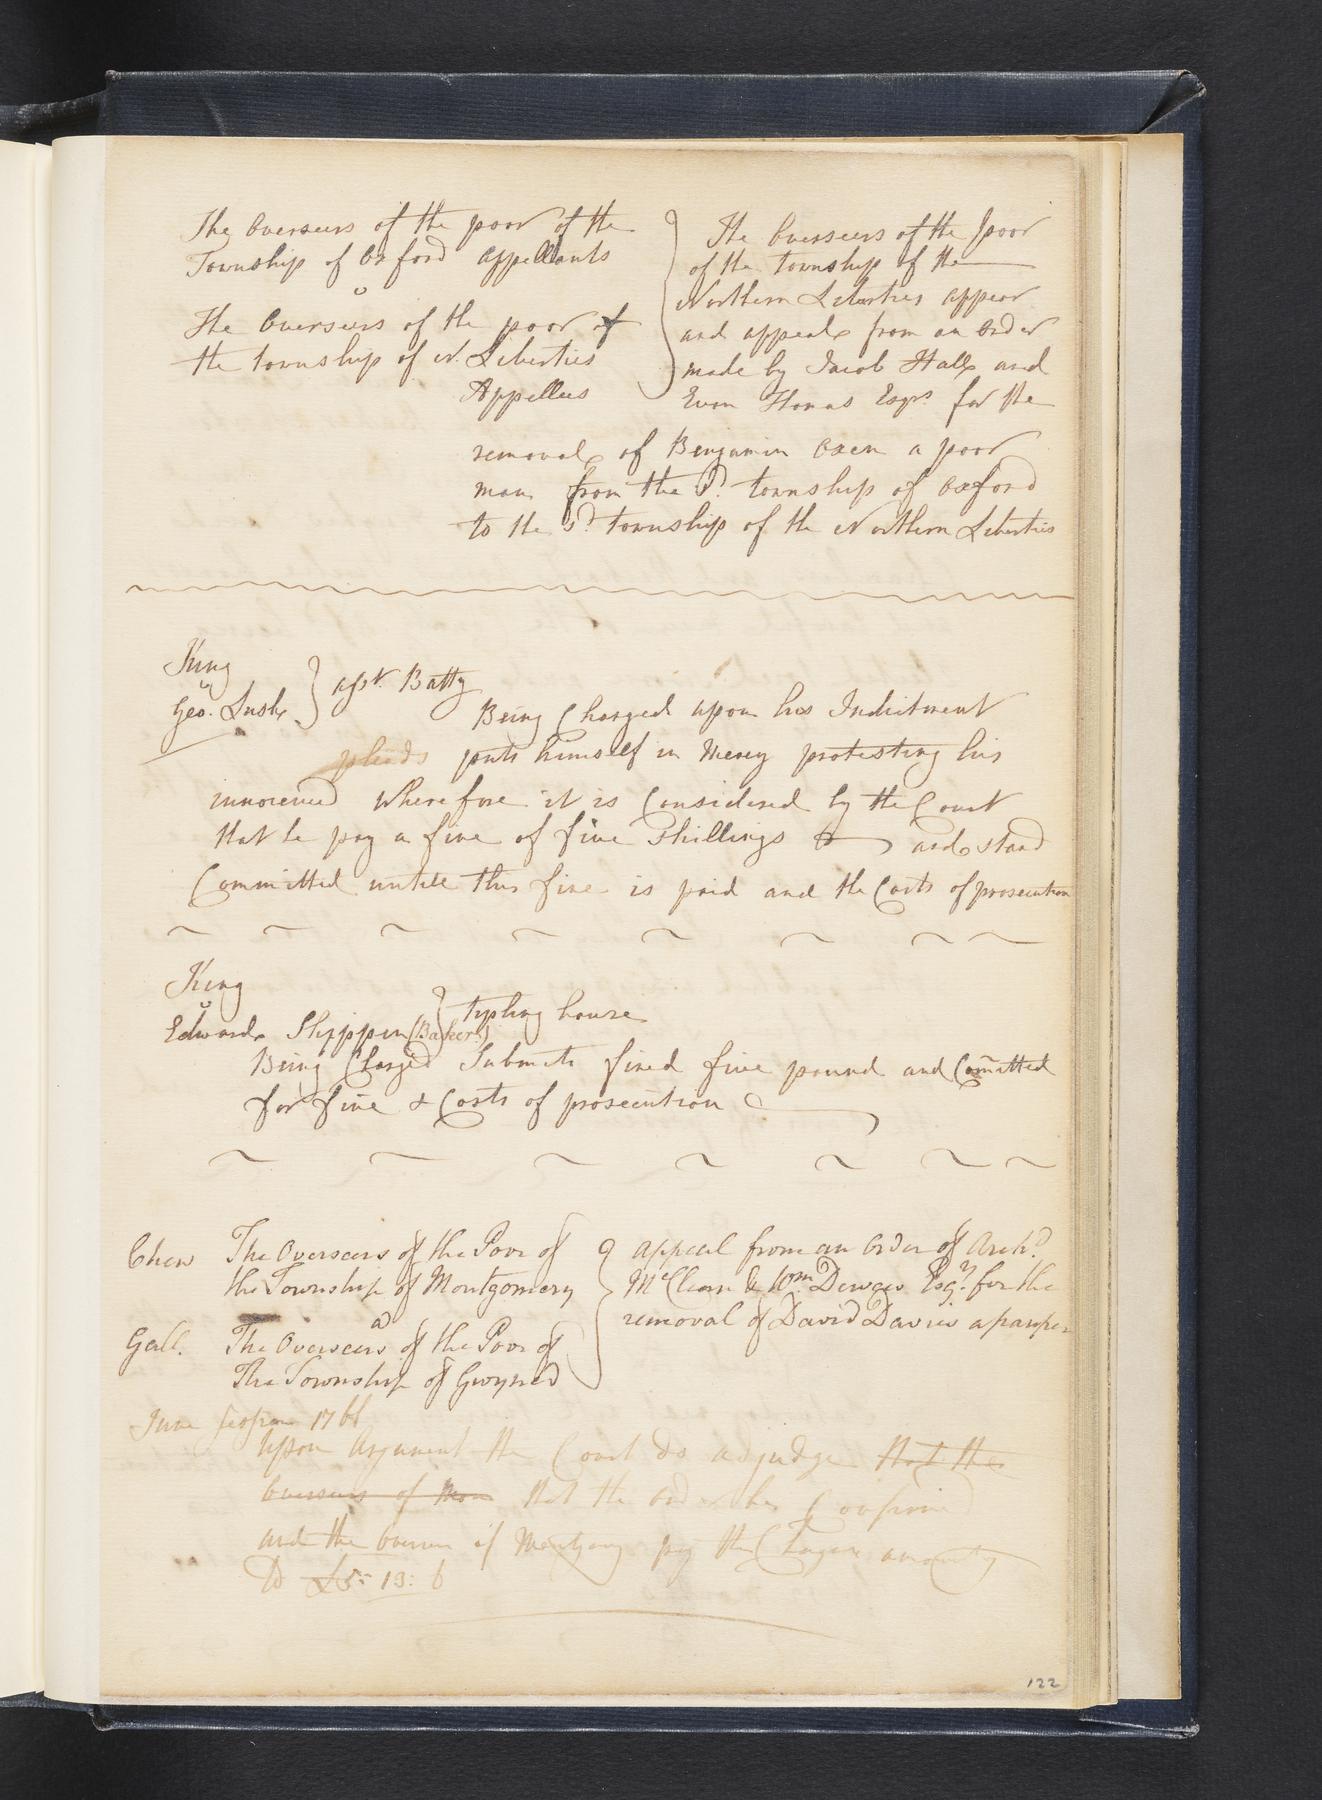 The Overseers of the poor of the
Township of Oxford Appellants
v
The Overseers of the poor of
the township of N. Liberties
Appellees
The Overseers of the poor
of the township of the
Northern Liberties appear
and appeal from an order
made by Jacob Hall and
Evan Thomas Esqrs for the
removal of Benjamin Oxen a poor
man from the sd. township of Oxford
to the sd township of the Northern Liberties
King
v
Geo. Lusk
asst. Batty
Being Charged upon his Indictment
pleads puts himself in Mercy protesting his
innocence Wherefore it is Considered by the Court
that he pay a fine of five shillings and stand
Committed untill this fine is paid and the Costs of prosecution
King
v
Edward Shippen (Baker)
tipling house
Being Charged Submits fined five pound and Comitted
for fine & Costs of prosecution
Chew The Overseers of the Poor of
the Township of Montgomery
ad
Gall. The Overseers of the Poor of
The Township of Gwyned
appeal from an Order of Archd.
McClean & Wm Dewees Esqrs. for the
removal of David Davies a pauper
June Session 1766
Upon Argument the Court do adjudge that the
Overseers of Mon that the order be Confirmed
and the Overseers of Montgomy pay the Charges amounting
to £5: 13: 6
122